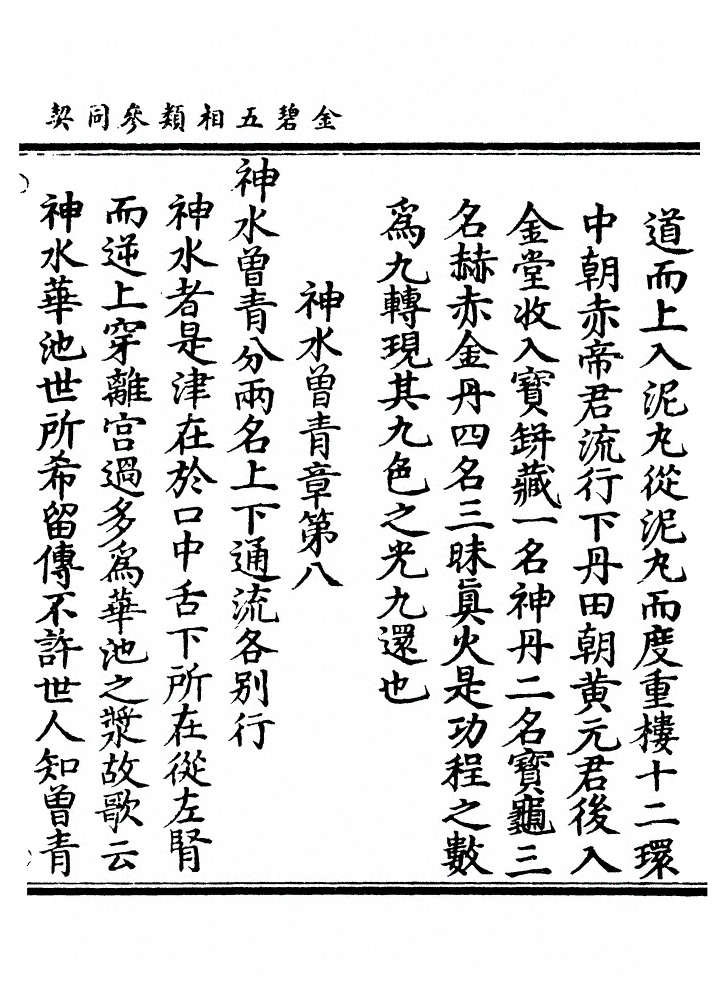 金碧五相類參同契
道而上入泥丸從泥丸而度重樓十二環
中朝赤帝君流行下丹田朝黄元君後入
金堂收入寶缾藏一名神丹二名寶龜三
名赫赤金丹四名三昧眞火是功程之數
爲九轉現其九色之光九還也
神水曽青章第八
神水曽青分兩名上下通流各别行
神水者是津在於口中舌下所在從左腎
而逆上穿離宫過多爲華池之漿故歌云
神水華池世所希留傳不許世人知曽青